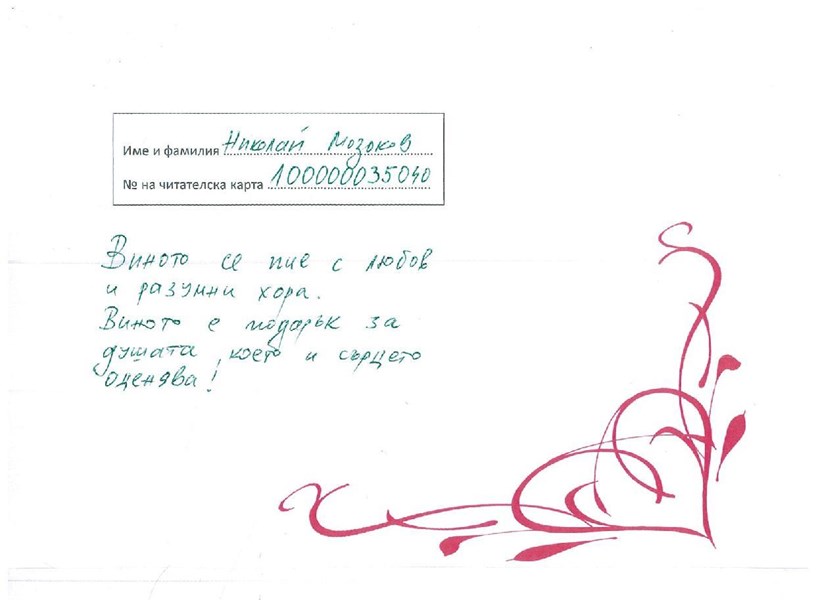 Име и фамилия Николай Мозоков
№ на читателска карта 100000035040
Виното се пие с любов
и разумни хора.
Виното е подарък за
душата, което и сърцето
оценява!